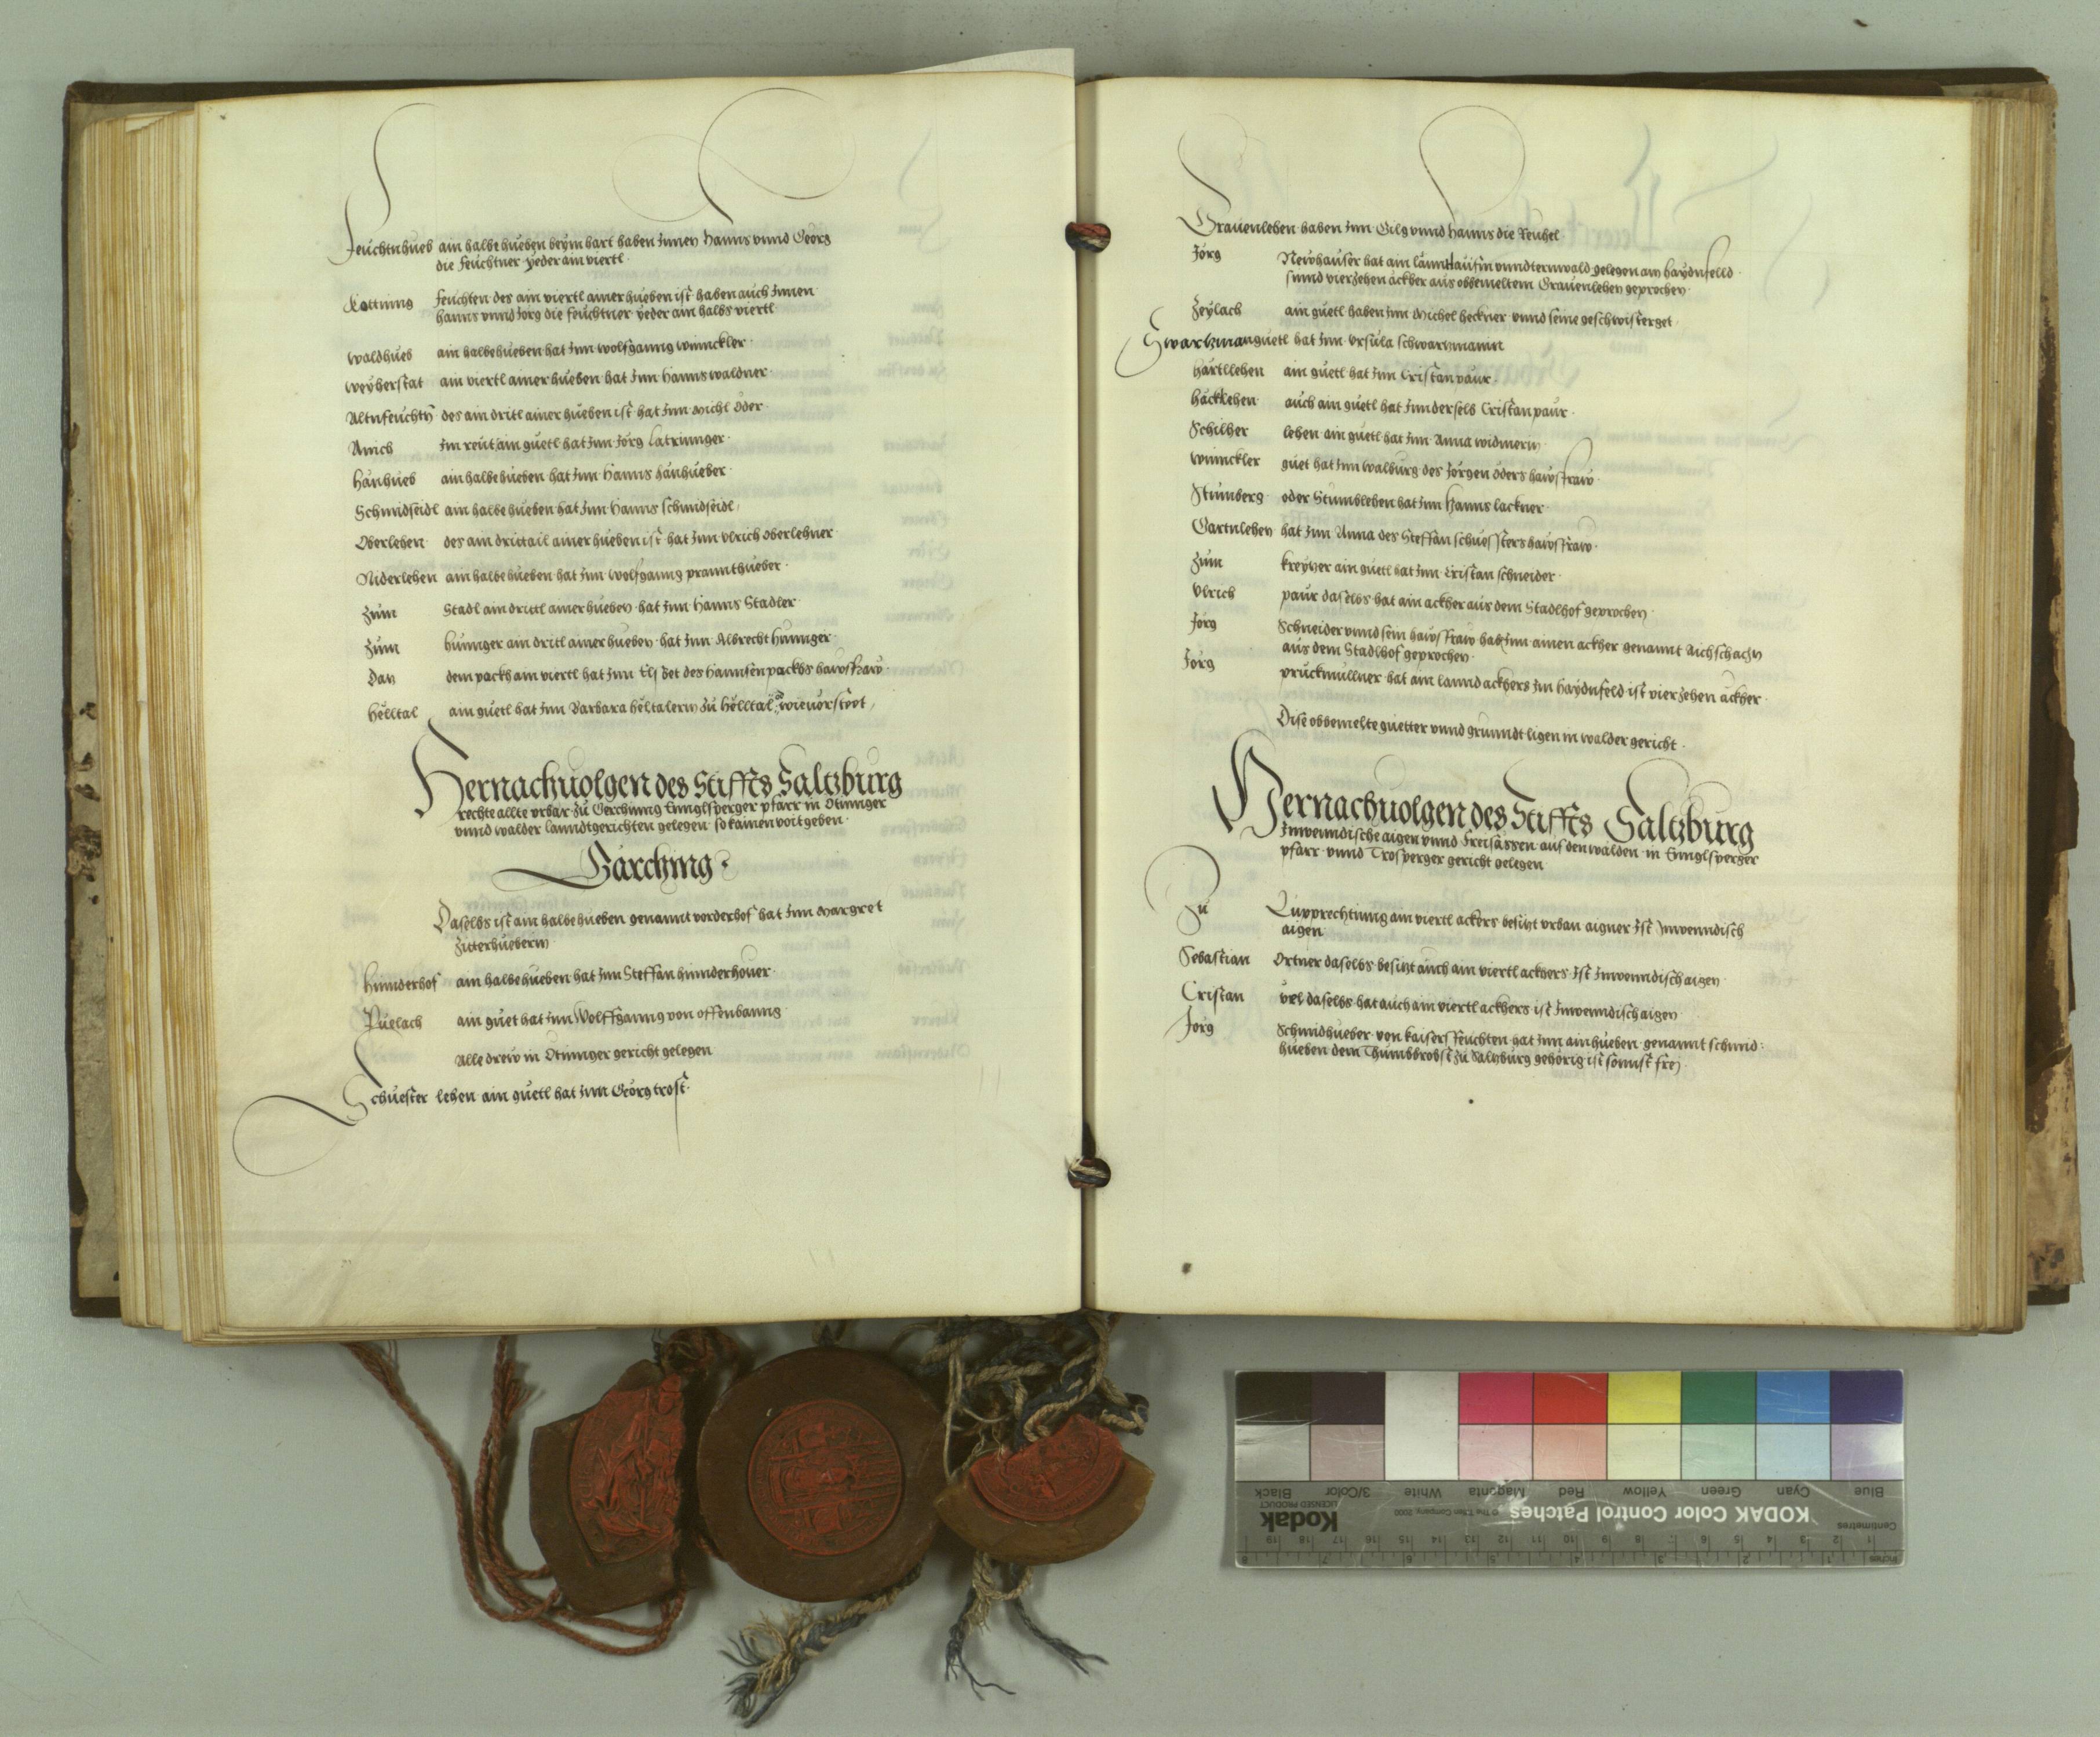 Feuchtnhueb ain halbe hueben beym hart haben Innen Hanns vnnd Georg
die feuchtner yeder ain viertl
Kottning feuchten des ain viertl ainer hueben ist haben auch Innen
hanns vnnd Jorg die feuchtner yeder ain halbs viertl
Waldhueb ain halbe hueben hat Inn wolfganng winnckler
Weyherstat ain viertl ainer hueben hat Inn Hanns waldner
Altnfeuchtn des ain dritl ainer hueben ist hat Inn Michl öder
Aurich Im reut ain guetl hat Inn Jorg
Hänhueb ain halbe hueben hat Inn Hanns hänhueber
Schmidseidl ain halbe hueben hat Inn Hanns schmidseidl
Oberlehen des ain drittail ainer hueben ist hat Inn Vlrich Oberlehner
Niderlehen ain halbe hueben hat Inn wolfganng prannthueber
Zum Stadl ain drittl ainer hueben hat Inn Hanns Stadler
Zum ain dritl ainer hueben hat Inn Albrecht
Dan dem packh ain viertl hat Inn Elsbet des Hannsen packhs hawsfraw
Helltal ain guetl hat Inn Barbara heltalerin zu Helltal wie vorsteet
Hernachuolgen des Stiffts Saltzburg
rechte allte vrbar zu Gerching Ennglsperger pfarr in Otinnger
vnnd walder lanndtgerichten gelegen so kainen voit geben
Härching
Daselbs ist ain halbe hueben genannt vorderhof hat Inn Margret
Zitterhueberin
Hinnderhof ain halbe hueben hat Inn Steffan hinnderhouer
Puelach ain guet hat Inn Wolffganng von offenbanng
Alle drew in Otinnger gericht gelegen
Schuester lehen ain guetl hat Inn Georg trost
Grauenlehen haben Inn Gilg vnnd Hanns die Reuhel
Jorg Newhauser hat ain vnndternwald gelegen am haydnfelld
sinnd vierzehen äckher aus obbemeltem Grauenlehen geprochen
Zeylach ain guetl haben Inn Michel heckner vnnd seine geschwisterget
Swartzmanguetl hat Inn Vrsula schwartzmanin
Härtllehen ain guetl hat Inn Cristan paur
Häcklehen auch ain guetl hat Inn derselb Cristan paur
Schilher lehen ain guetl hat Inn Anna widmerin
Winnckler guet hat Inn Walburg des Jorgen öders hawsfraw
Stumberg oder Stumblehen hat Inn Hanns lackner
Gartnlehen hat Inn Anna des Steffan schuessters hawsfraw
Zum kreyher ain guetl hat Inn Cristan schneider
Vlrich paur daselbs hat ain ackher aus dem Stadlhof geprochen
Jorg Schneider vnnd sein hawsfraw hab Inn ainen ackher genannt Aichschachn
aus dem Stadlhof geprochen
Jorg pruckmullner hat ain lannd ackhers Im Haydnfeld ist vierzehen äckher
Dise obbemelte guetter vnnd grunndt ligen in walder gericht
Hernachuolgen des Stiffts Saltzburg
Inwenndische aigen vnnd freisässen aus den walden in Ennglsperger
pfarr vnnd Trosperger gericht gelegen
Zu Rupprechting ain viertl ackers besitzt vrban aigner Ist Inwenndisch
aigen
Sebastian Ortner daselbs besitzt auch ain viertl ackhers Ist Inwenndisch aigen
Cristan daselbs hat auch ain viertl ackhers ist Inwenndisch aigen
Jorg Schmidhueber von kaisersfeuchten hat Inn ain hueben genannt schmid
hueben dem Thumbbrobst zu Saltzburg gehörig ist sonnst frej
Blue Cyan Green Yellow Red Magenta White 3/Color Black
KODAK Color Control Patches © The Tiffen Company, 2000 Kodak LICENSED PRODUCT
Centimetres 1 2 3 4 5 6 7 8 9 10 11 12 13 14 15 16 17 18 19
Inches 1 2 3 4 5 6 7 8